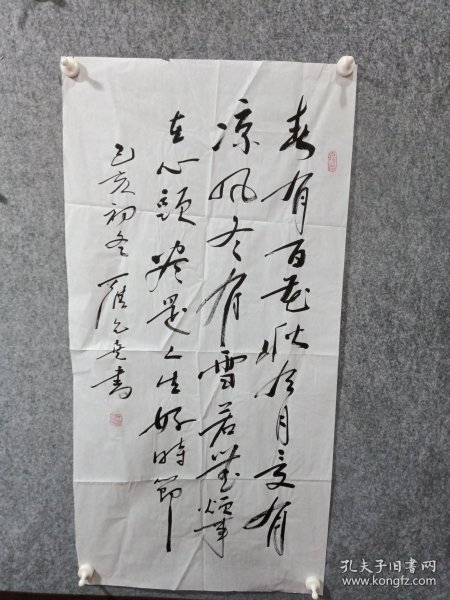 春有百花秋有月夏有
凉风冬有雪若無煩事
在心頭尽是人生好時節
己亥初冬 書
孔夫子旧书网
www.kongfz.com